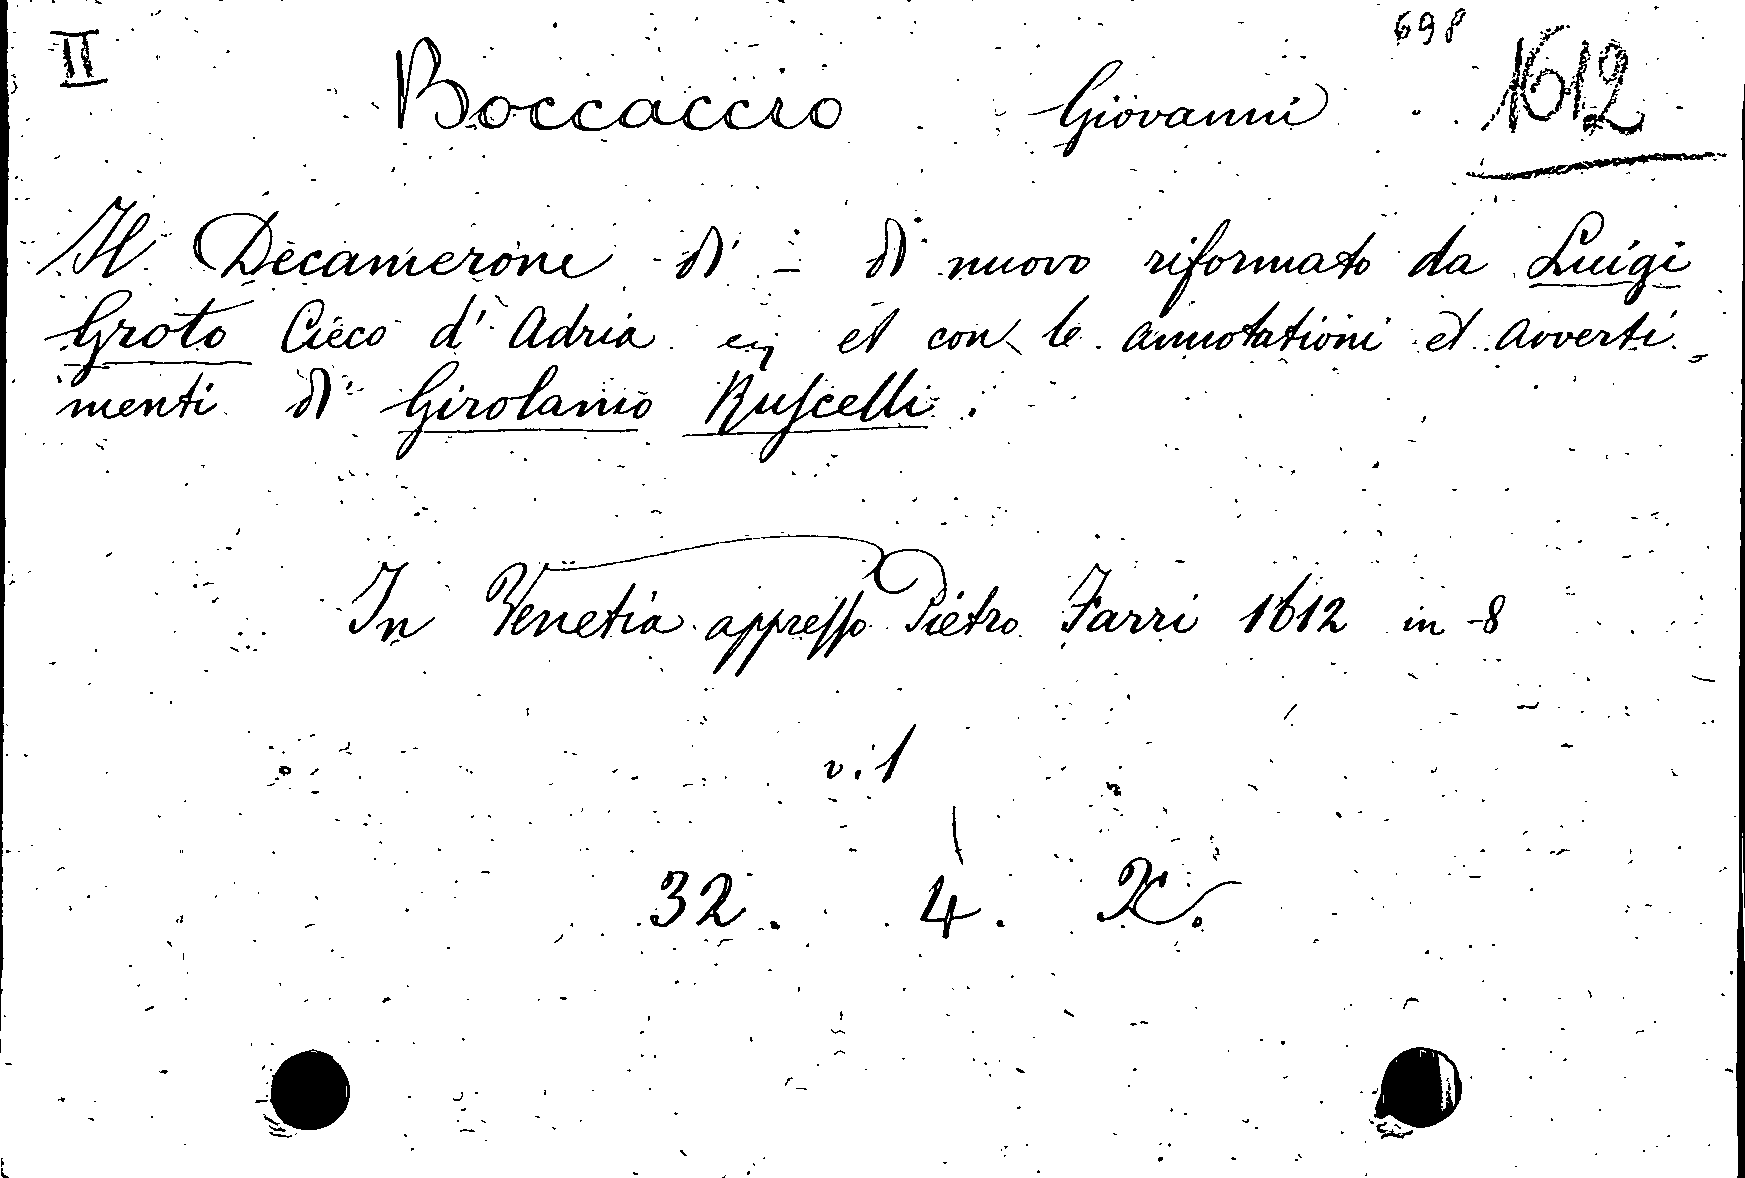 II
698
Boccaccio Giovanni 1612
Il Decamerone di - di nuovo riformato da Luigi
Groto Cieco d'Adria et con le annotationi et averti-
menti di Girolamo Ruscelli.
In Venetia appresso Pietro Farri 1612 in-8
v.1
32. 4.